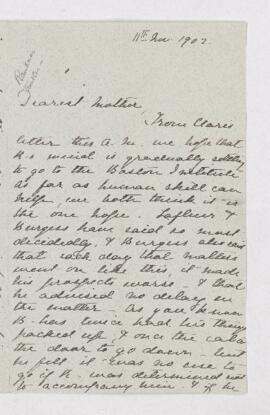 11th Nov 1902
Dearest Mother,
From Clare's
letter this A.M. we hope that
R's mind is gradually settling
to go to the Boston Institute
as far as human skill can
help, we both think is in
the one hope. Lafleur &
Burgess have said so most
decidedly, & Burgess also said
that each day that matters
went on like this, it made
his prospects worse - & that
he advised no delay in
the matter - As you know
R - has twice had his things
packed up & once the cab at
the door to go down - but
he felt it was no use to
go if R. was determined not
to accompany him - & if he